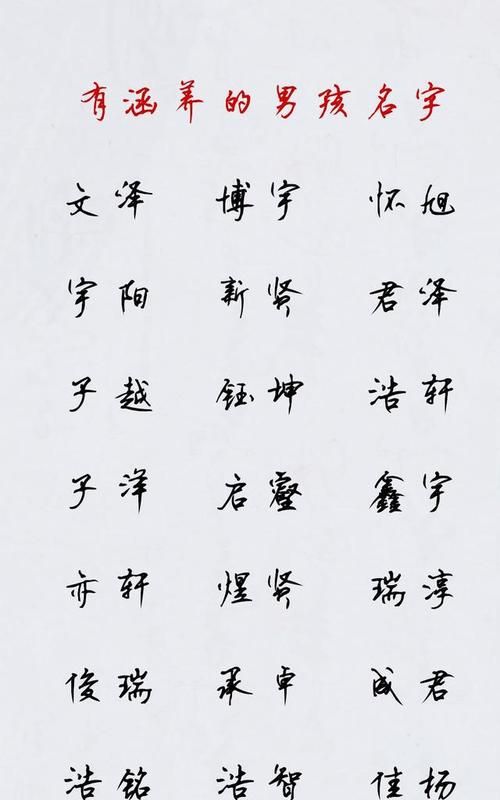 有涵养的男孩名字
文泽 博宇 怀旭
宇阳 新贤 君泽
子越 钰坤 浩轩
子洋 启壑 鑫宇
亦轩 煜贤 瑞淳
俊瑞 承卓 成君
浩铭 浩智 佳杨